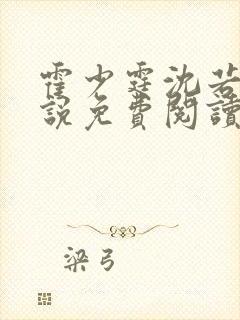 霍少霆沈若
說免費閱讀
梁弓